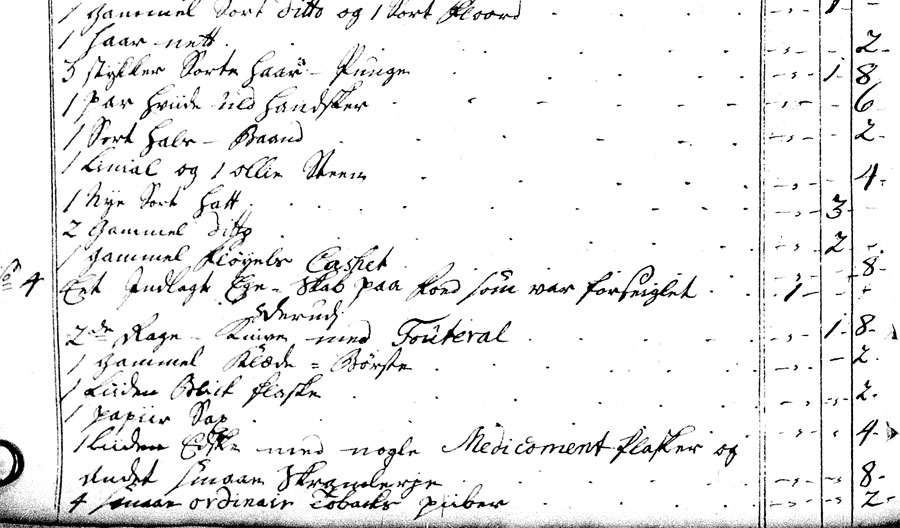 1 gammel Sort ditto og 1 Sort Floord - 1 -
1 haar nett - „ - - 2 -
3 stykker Sorte haar - Punge - „ - 1 8
1 par hviide Uld handsker - „ - - 6
1 Sort hals - Baand - „ - - 2
1 Linial og 1 ollie Steen - „ - - 4 -
1 Nye Sort hatt - „ - 3 -
2 Gammel ditto - „ - 2 -
1 gammel Fløyels Casket - 8 -
No 4 Eet Indlagt Ege - Skab paa Foed som var forseiglet - 1 - -
Derudj
2de Rage - Knive med Fouteral - „ - 1 8 -
1 gammel Klæde = Børste - 2 -
1 Liiden Blik flaske - „ - 2 -
1 papiir Sax - „ - 4 -
1 Liiden Eske med nogle Medicoment flasker og
andet smaae Skramlerje - „ - 8 -
4 smaae ordinair Tobacks piiber - „ - 2 -